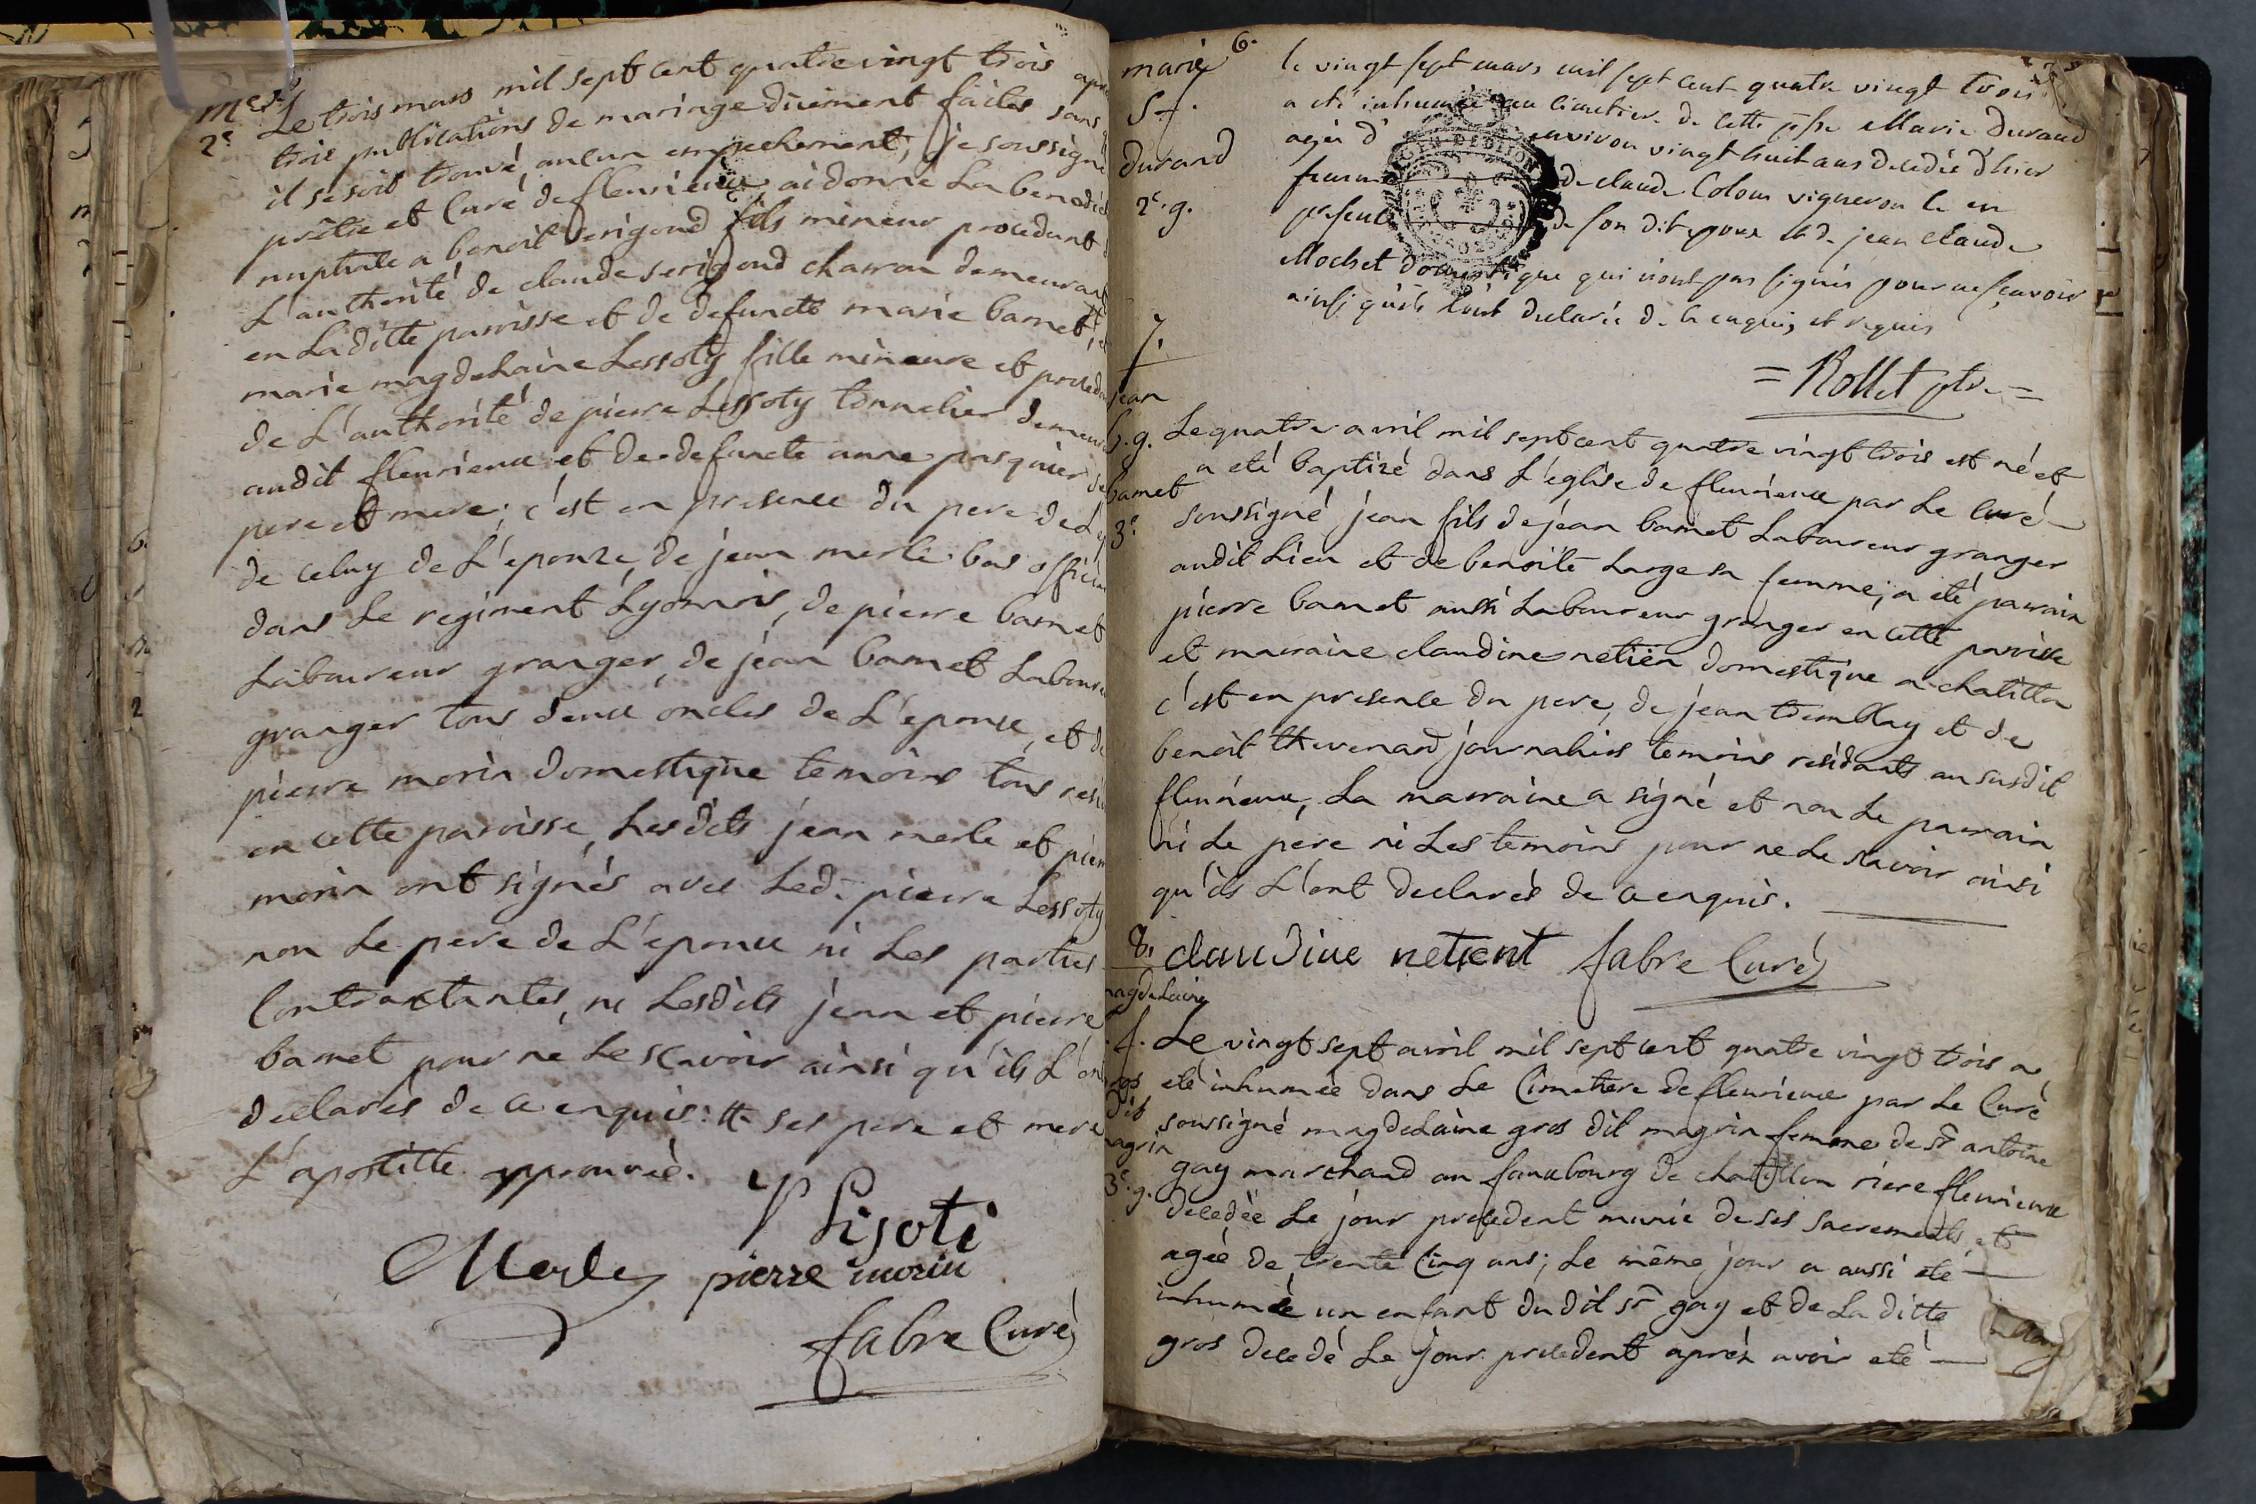 2e
Le trois mars mil sept cent quatre vingt trois apr
trois publications de mariage duement faites sans
il se soit trouvé aucun empechement, je soussigné
prêtre et Curé de fleurieux ai donné La bened
nuptiale a benoit serigond fils mineur procedant
L'authorité de claude serigond charron demeurant
en Laditte paroisse et de defuncte marie bamet,
marie magdelaine Lessoty fille mineure et proced
de L'authorité de pierre Lessoty tonnelier demeur
audit fleurieux et de defuncte anne pasquier
pere et mere; c'est en presence du pere de L'
de celuy de L'epouze, de jean merle bas officier
dans Le regiment Lyonnois, de pierre bamet
Laboureur granger, de jean bamet Laboure
granger tous deux oncles de L'epoux, et de
pierre morin domestique temoins tous resi
en cette paroisse, Lesdits jean merle et pierr
morin ont signés avec Led. pierre Lessoty
non Le pere de L'epoux ni Les parties
Contractantes, ni Lesdits jean et pierre
bamet pour ne Le scavoir ainsi qu'ils L'on
declarés de ce enquis: # ses pere et mere
L'apostille approuvée.
P Lisoti
Merle pierre morin
fabre Curé
6.
marie
durand
2e. g.
le vingt sept mars mil sept cent quatre vingt trois
a été inhumée au cimetiere de cette psse Marie durand
agée d'environ vingt huit ans decedée d'hier
femme de claude Colom vigneron le en
presence de son dit epoux et de jean claude
Mochet domestique qui n'ont pas signés pour ne scavoir
ainsi qu'ils l'ont declaré de ce enquis et requis
= Rollet ptre =
7.
jean
b. g.
bamet
3e
Le quatre avril mil sept cent quatre vingt trois est né et
a eté baptizé dans L'église de fleurieux par Le Curé
soussigné jean fils de jean bamet Laboureur granger
audit Lieu et de benoite Large sa femme; a eté parrain
pierre bamet aussi Laboureur granger en cette paroisse
et marraine claudine netien domestique a chatillon
c'est en presence du pere, de jean tremblay et de
benoit thevenard journaliers temoins residants au susdit
fleurieux, La marraine a signé et non Le parrain
ni Le pere ni Les temoins pour ne Le scavoir ainsi
qu'ils L'ont declarés de ce enquis.
claudine netient fabre Curé
8.
magdelaine
f.
gros
dit
magrin
3e. g.
Le vingt sept avril mil sept cent quatre vingt trois a
eté inhumée dans Le Cimetiere de fleurieux par Le Curé
soussigné magdelaine gros dit magrin femme de sr antoine
gay marchand au fauxbourg de chatillon riere fleurieux
decedée Le jour precedent munie de ses sacrements et
agée de trente Cinq ans; Le même jour a aussi eté
inhumée un enfant dudit sr gay et de La ditte
gros decedé Le jour precedent aprés avoir eté